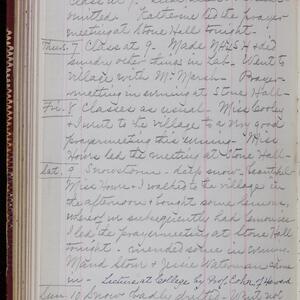 invited. Katherine led the prayer
meeting at Stone Hall tonight.
Thurs. 7 Classes at 9. Made and
sundry other things in Lab. Went to
village with M. Marsh. Prayer-
meeting in evening at Stone Hall-
Fri. 8 Classes as usual. Miss Cooley
& I went to the village to a very good
prayermeeting this evening. Miss
Howe led the meeting at Stone Hall-
Sat. 9 Snowstorm- deep snow, beautiful-
Miss Howe & I walked to the village in
the afternoon & bought some lemons,
whereof in subsequently had lemonice
I led the prayermeeting at Stone Hall
tonight. some in
Maud Stone & Jessie Waterman
in- Lecture at College by Prof. Cohn of Harvard
Sun. 10 Snow badly but not